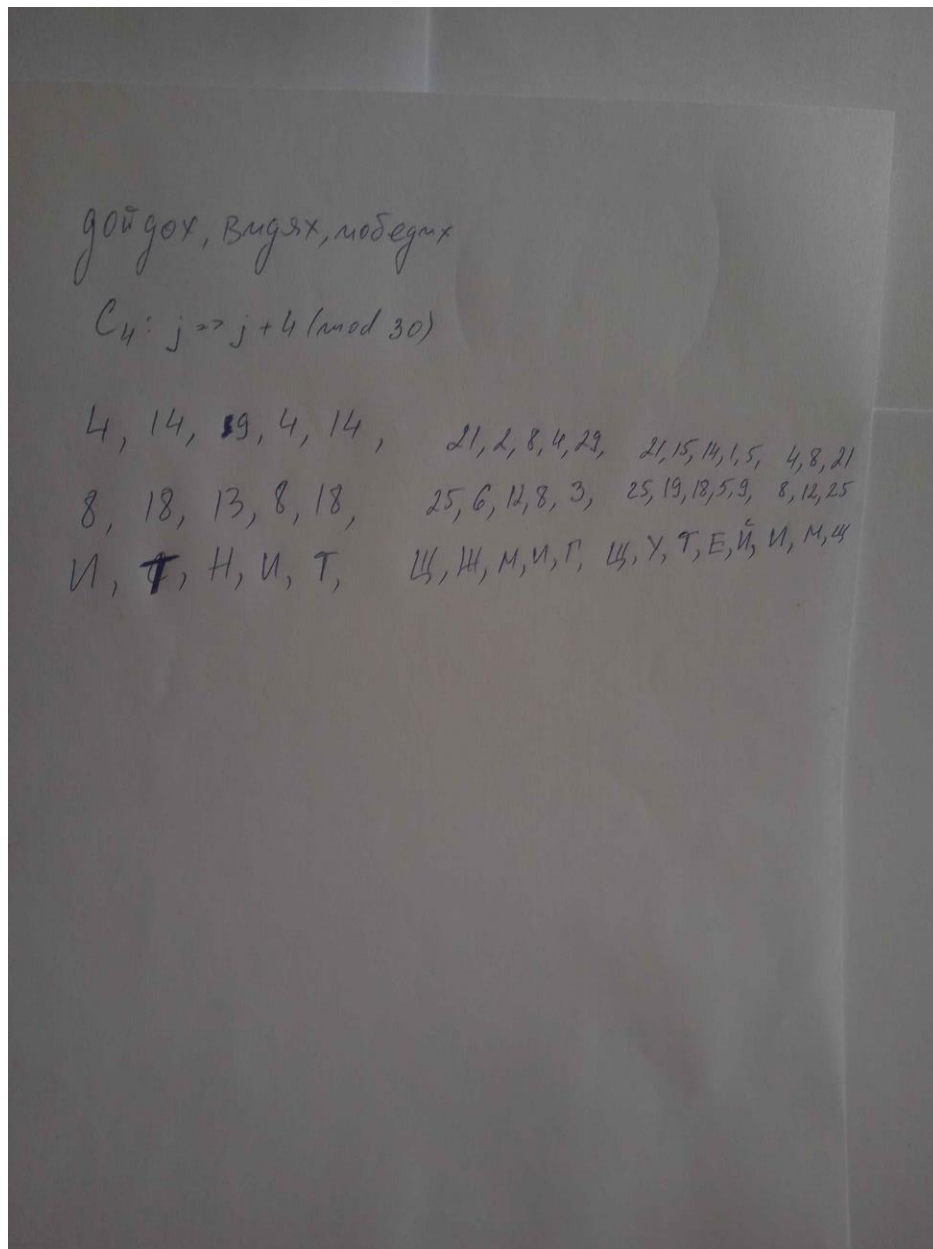 дойдох, видях, победих
C₄: j => j + 4 (mod 30)
4, 14, 9, 4, 14, 21, 2, 8, 4, 29, 21, 15, 14, 1, 5, 4, 8, 21
8, 18, 13, 8, 18, 25, 6, 12, 8, 3, 25, 19, 18, 5, 9, 8, 12, 25
И, Т, Н, И, Т, Щ, Ж, М, И, Г, Щ, У, Т, Е, Й, И, М, Щ